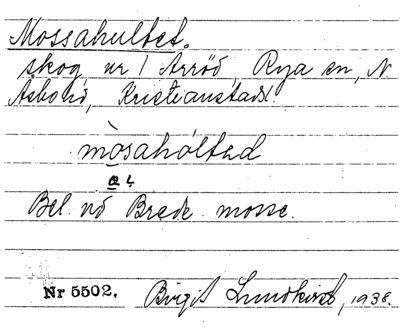 Mossahultet.
skog, nr 1 Arröd, Rya sn, N
Åsbohd, Kristianstads l.
mòsahóltəd
a ļ
Bel. vd Brede mosse.
Nr 5502. Birgit Lundkvist, 1938.